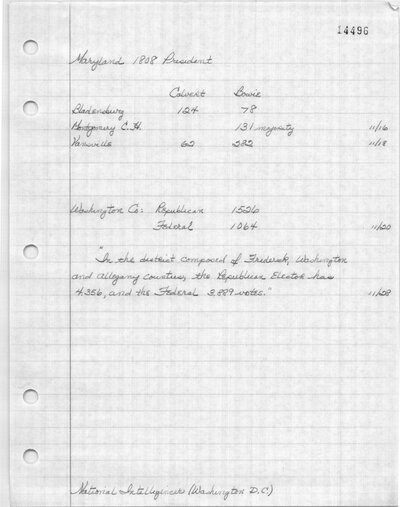 14496
Maryland 1808 President
Calvert Bowie
Bladensburg 124 78
Montgomery C.H. 131 majority 11/16
Vansville 62 282 11/18
Washington Co: Republican 1526
Federal 1064 11/20
"In the district composed of Frederick, Washington
and Allegany counties, the Republican Elector has
4,356, and the Federal 3,889 votes." 11/28
National Intelligencer (Washington D.C.)